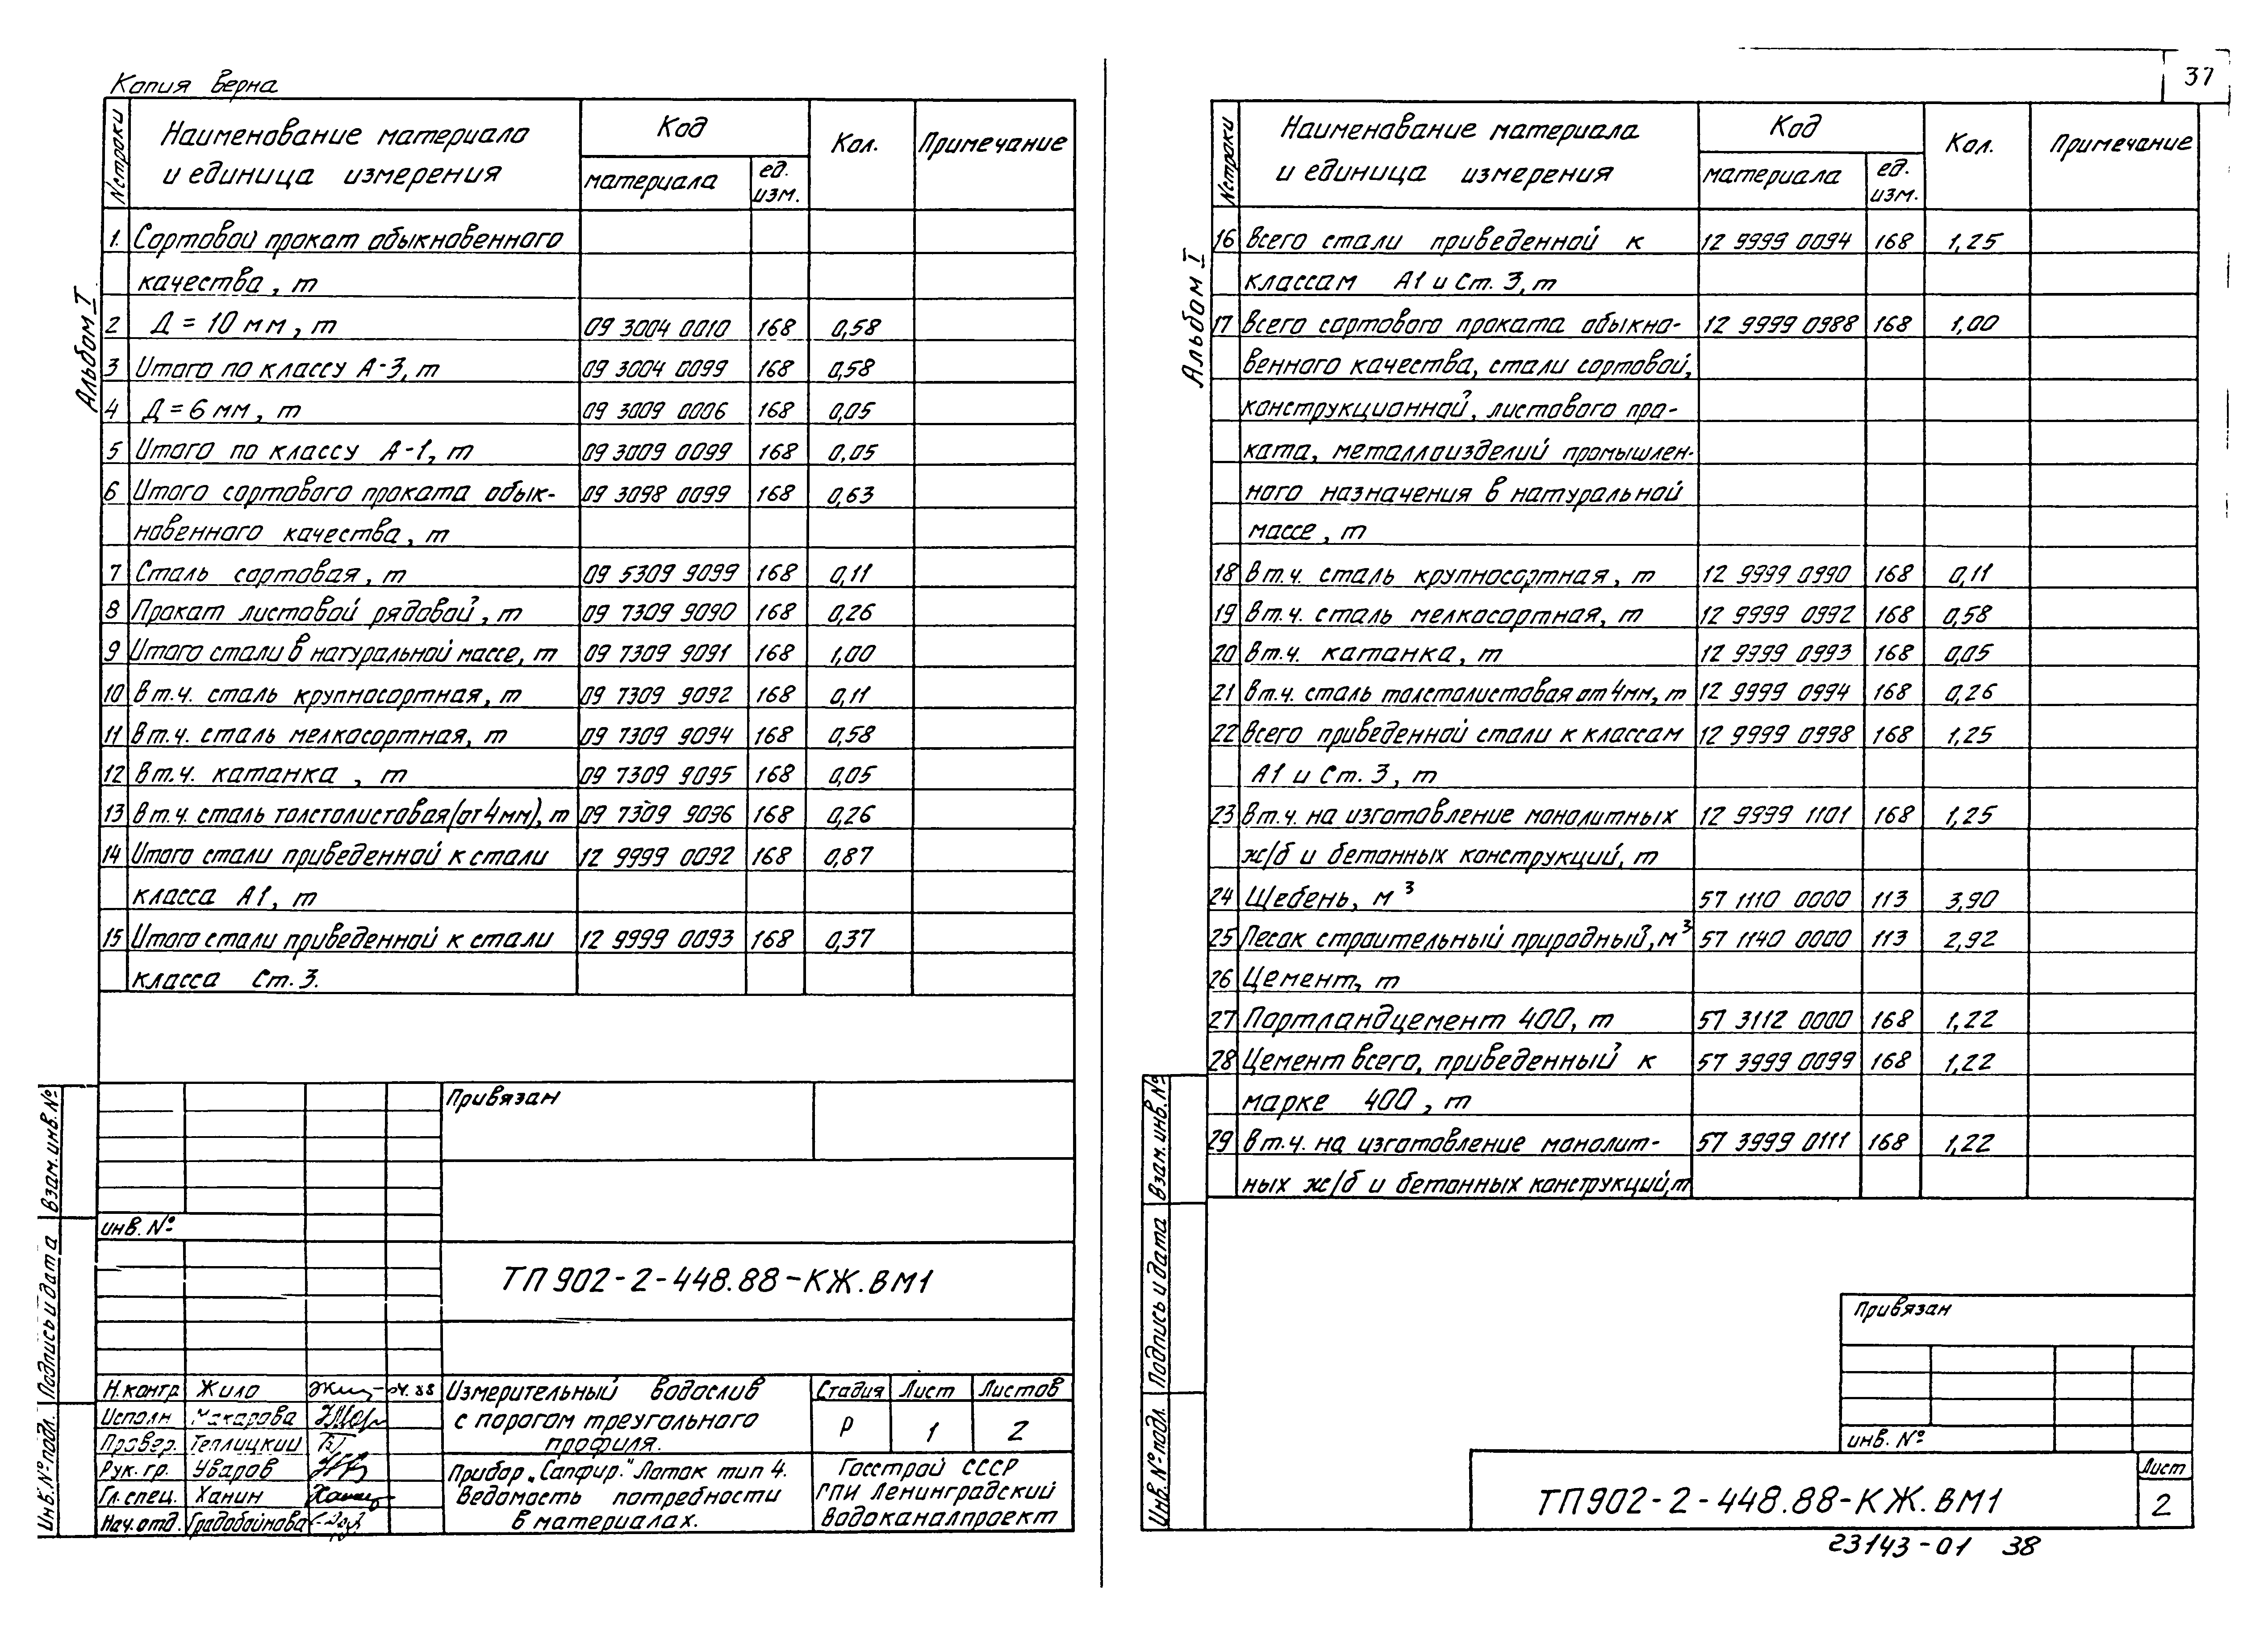 Копия верна
Альбом I
№ строки
Наименование материала
и единица измерения
Код
материала
ед.
изм.
Кол.
Примечание
1. Сортовой прокат обыкновенного
качества, т
2 Д = 10 мм, т 09 3004 0010 168 0,58
3 Итого по классу А-3, т 09 3004 0099 168 0,58
4 Д = 6 мм, т 09 3009 0006 168 0,05
5 Итого по классу А-1, т 09 3009 0099 168 0,05
6 Итого сортового проката обык- 09 3098 0099 168 0,63
новенного качества, т
7 Сталь сортовая, т 09 5309 9099 168 0,11
8 Прокат листовой рядовой, т 09 7309 9090 168 0,26
9 Итого стали в натуральной массе, т 09 7309 9091 168 1,00
10 В т.ч. сталь крупносортная, т 09 7309 9092 168 0,11
11 В т.ч. сталь мелкосортная, т 09 7309 9094 168 0,58
12 В т.ч. катанка, т 09 7309 9095 168 0,05
13 В т.ч. сталь толстолистовая (от 4 мм), т 09 7309 9096 168 0,26
14 Итого стали приведенной к стали 12 9999 0092 168 0,87
класса А1, т
15 Итого стали приведенной к стали 12 9999 0093 168 0,37
класса Ст. 3.
Привязан
инв. №
ТП 902-2-448.88-КЖ.ВМ1
Н.контр. Жило 04.88
Исполн Макарова
Провер. Теплицкий
Рук. гр. Уваров
Гл. спец. Ханин
Нач. отд. Градобойнова
Измерительный водослив
с порогом треугольного
профиля.
Прибор „Сапфир." Лоток тип 4.
Ведомость потребности
в материалах.
Стадия Лист Листов
Р 1 2
Госстрой СССР
ГПИ Ленинградский
Водоканалпроект
Взам. инв. №
Подпись и дата
Инв. № подл.
37
Альбом I
№ строки
Наименование материала
и единица измерения
Код
материала
ед.
изм.
Кол.
Примечание
16 Всего стали приведенной к 12 9999 0094 168 1,25
классам А1 и Ст. 3, т
17 Всего сортового проката обыкно- 12 9999 0988 168 1,00
венного качества, стали сортовой,
конструкционной, листового про-
ката, металлоизделий промышлен-
ного назначения в натуральной
массе, т
18 В т.ч. сталь крупносортная, т 12 9999 0990 168 0,11
19 В т.ч. сталь мелкосортная, т 12 9999 0992 168 0,58
20 В т.ч. катанка, т 12 9999 0993 168 0,05
21 В т.ч. сталь толстолистовая от 4мм, т 12 9999 0994 168 0,26
22 Всего приведенной стали к классам 12 9999 0998 168 1,25
А1 и Ст. 3, т
23 В т.ч. на изготовление монолитных 12 9999 1101 168 1,25
ж/б и бетонных конструкций, т
24 Щебень, м³ 57 1110 0000 113 3,90
25 Песок строительный природный, м³ 57 1140 0000 113 2,92
26 Цемент, т
27 Портландцемент 400, т 57 3112 0000 168 1,22
28 Цемент всего, приведенный к 57 3999 0099 168 1,22
марке 400, т
29 В т.ч. на изготовление монолит- 57 3999 0111 168 1,22
ных ж/б и бетонных конструкций, т
Привязан
инв. №
ТП 902-2-448.88-КЖ.ВМ1
Лист
2
Взам. инв. №
Подпись и дата
Инв. № подл.
23143-01 38